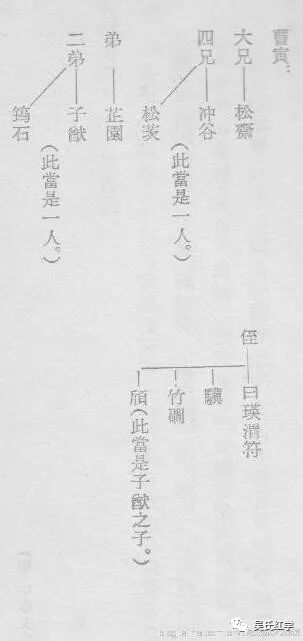 曹寅：
大兄
松齋
四兄
冲谷
松茨
（此當是一人。）
弟
芷園
二弟
子猷
筠石
（此當是一人。）
侄
曰瑛渭符
驥
竹磵
頎（此當是子猷之子。）
吴氏红学